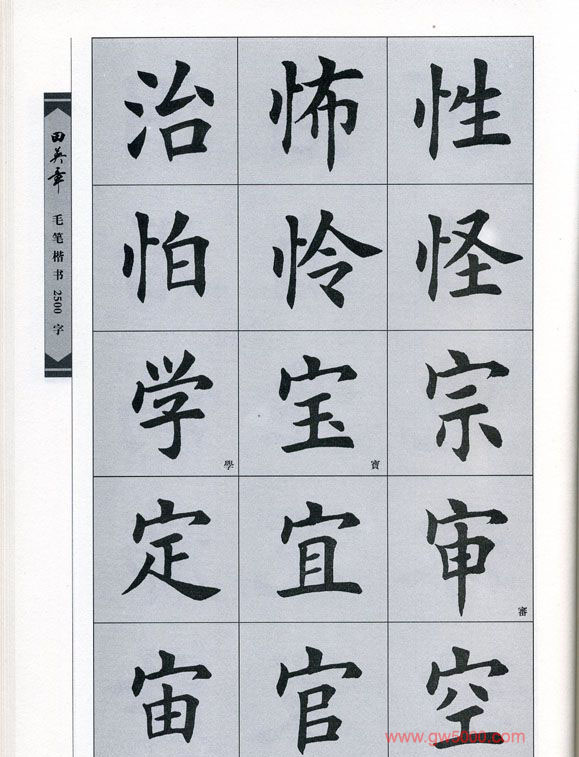 田英章
毛笔楷书2500字
治 怖 性
怕 怜 怪
学 學 宝 寶 宗
定 宜 审 審
宙 官 空
www.gw5000.com